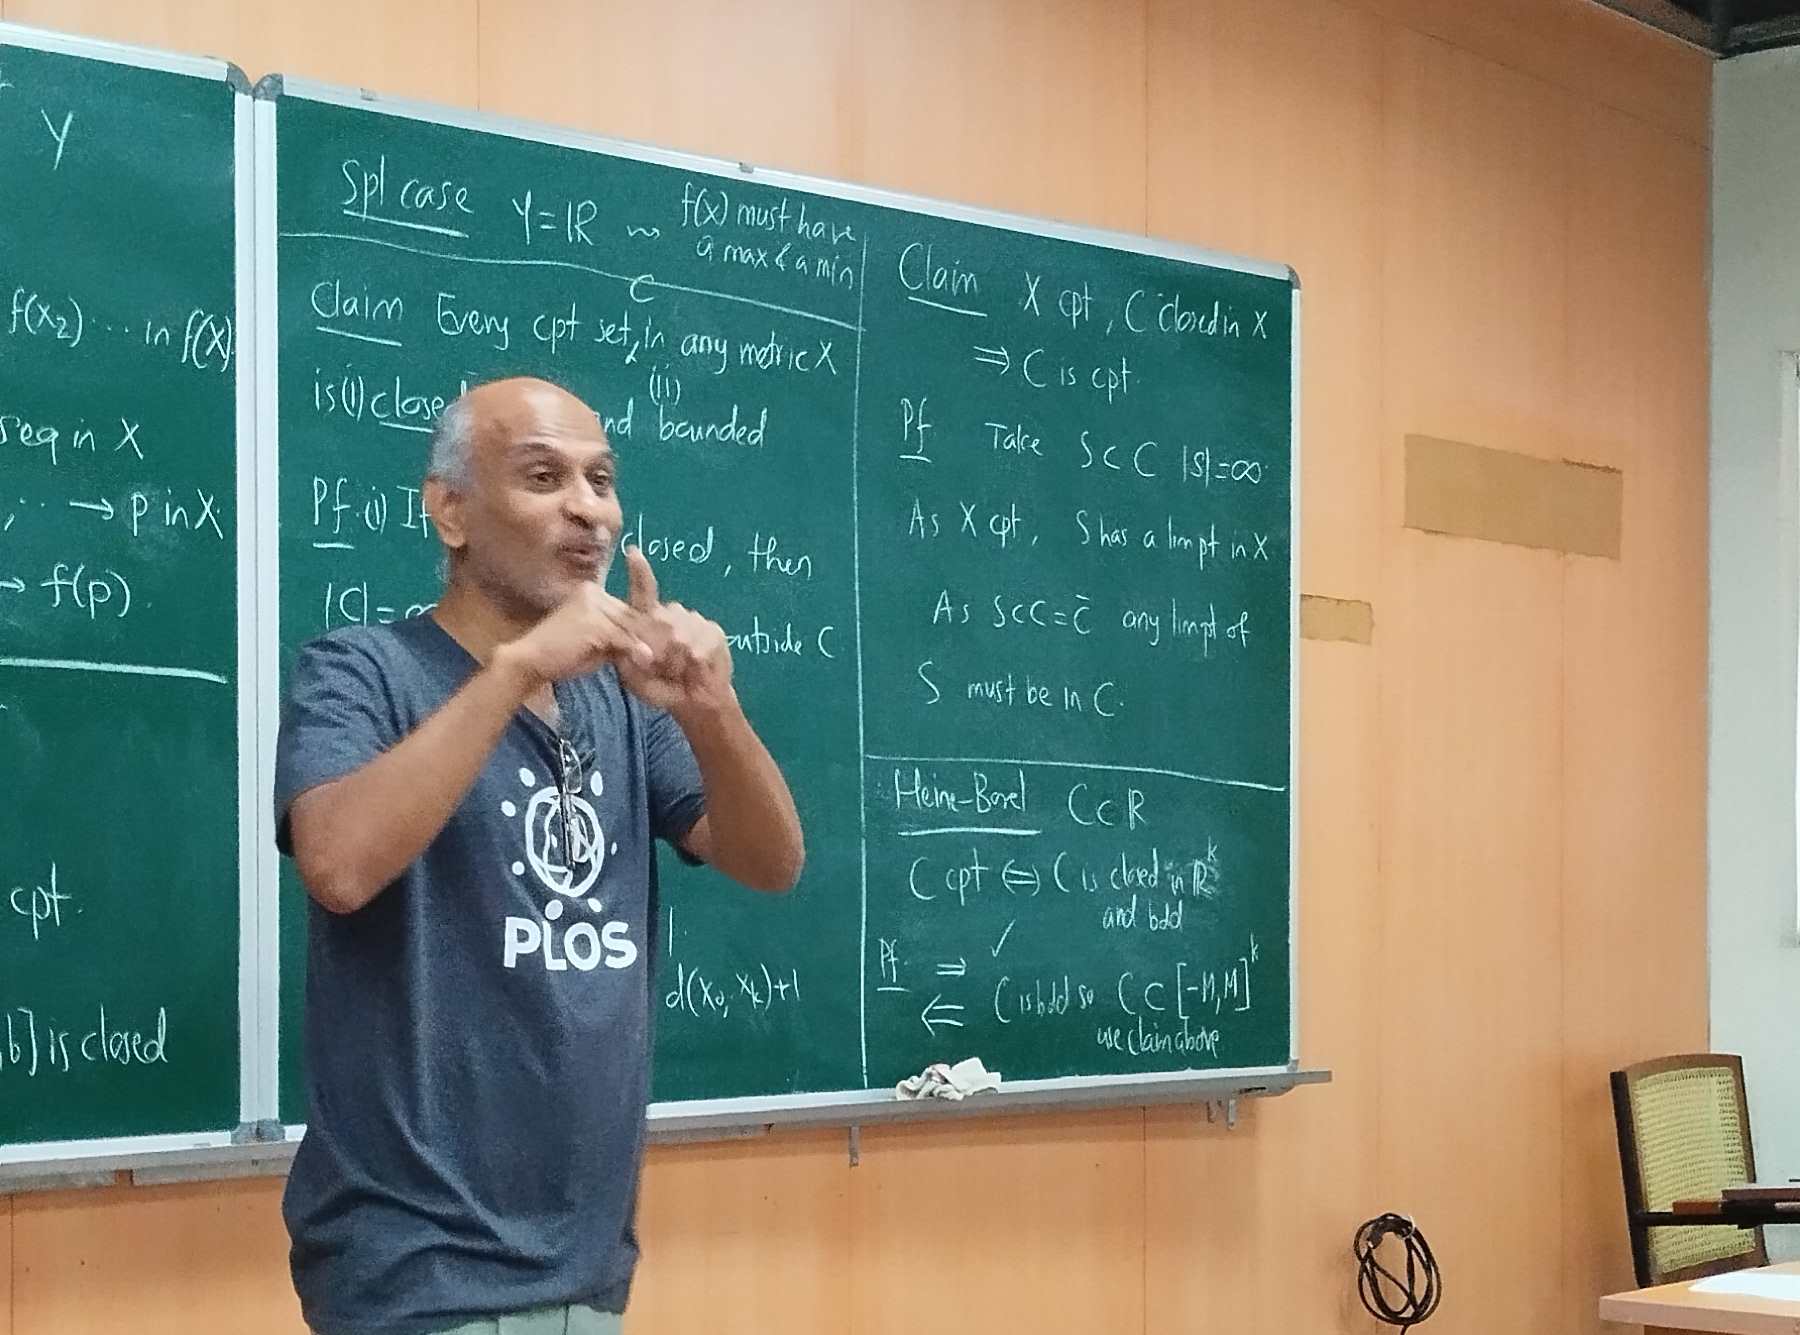 Y
f(x₂) ... in f(X)
seq in X
→ p in X
→ f(p).
cpt.
b] is closed
Spl case Y = ℝ ⇝ f(x) must have
a max & a min
Claim Every cpt set C in any metric X
is (i) closed and (ii) bounded
Pf. (i) If closed, then
|C| = ∞ outside C
1.
d(x₀, xₖ)+1
Claim X cpt, C closed in X
⇒ C is cpt.
Pf Take S ⊂ C |S| = ∞
As X cpt, S has a lim pt in X
As S ⊂ C = C̄ any lim pt of
S must be in C.
Heine-Borel C ⊂ ℝ
C cpt ⇔ C is closed in ℝᵏ
and bdd
Pf. ⇒ ✓
⇐ C is bdd so C ⊂ [-M, M]ᵏ
use claim above
PLOS